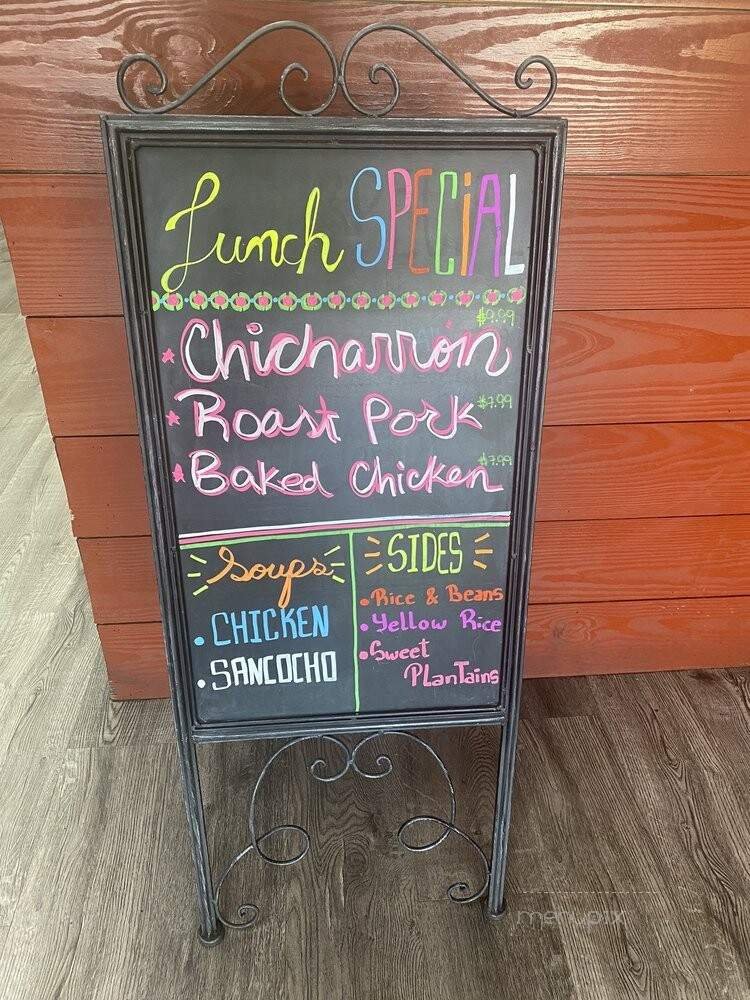 Lunch SPECiAL
$9.99
Chicharrón
Roast Pork $7.99
$7.99
Baked Chicken
Soups
CHICKEN
SANCOCHO
SIDES
Rice & Beans
Yellow Rice
Sweet
PLanTains
menupix